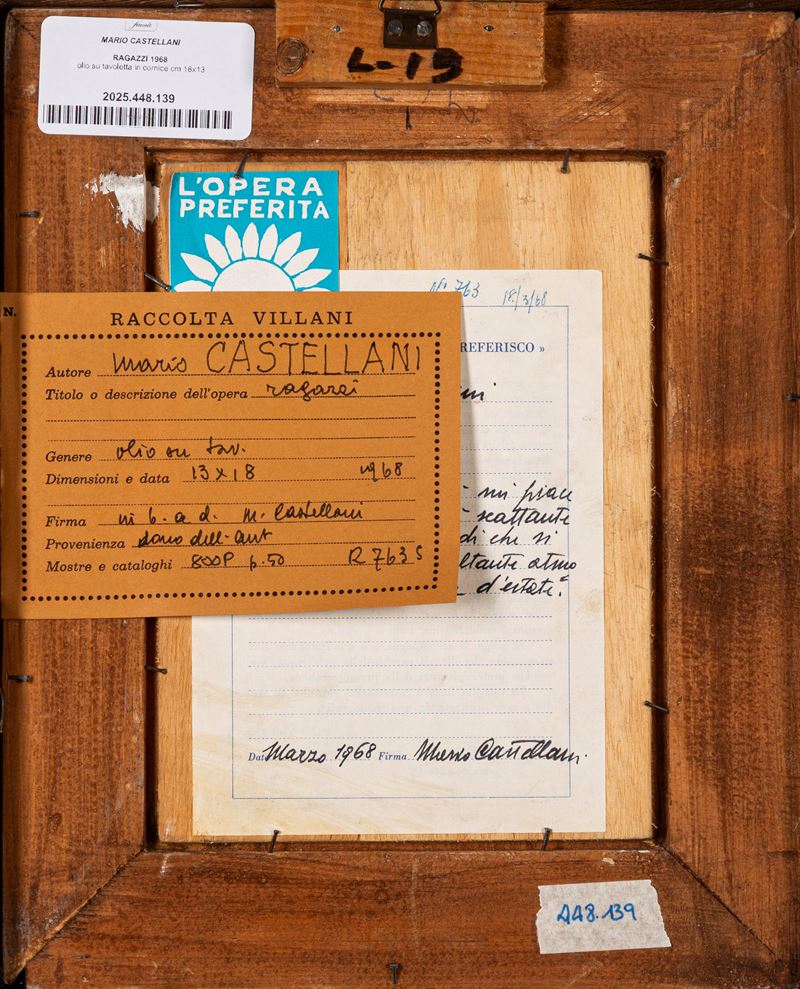 MARIO CASTELLANI
RAGAZZI 1968
olio su tavoletta in cornice cm 18x13
2025.448.139
L-15
L'OPERA
PREFERITA
N° 763 18/3/68
REFERISCO »
N.
RACCOLTA VILLANI
Autore Mario CASTELLANI
Titolo o descrizione dell'opera ragazzi
Genere olio su tav.
Dimensioni e data 13x18 1968
Firma in b. a d. M. Castellani
Provenienza dono dell'aut
Mostre e cataloghi 800P p. 50 R 763 S
mi piace
scattante
di che si
d'estate."
Data Marzo 1968 Firma Mario Castellani
448.139